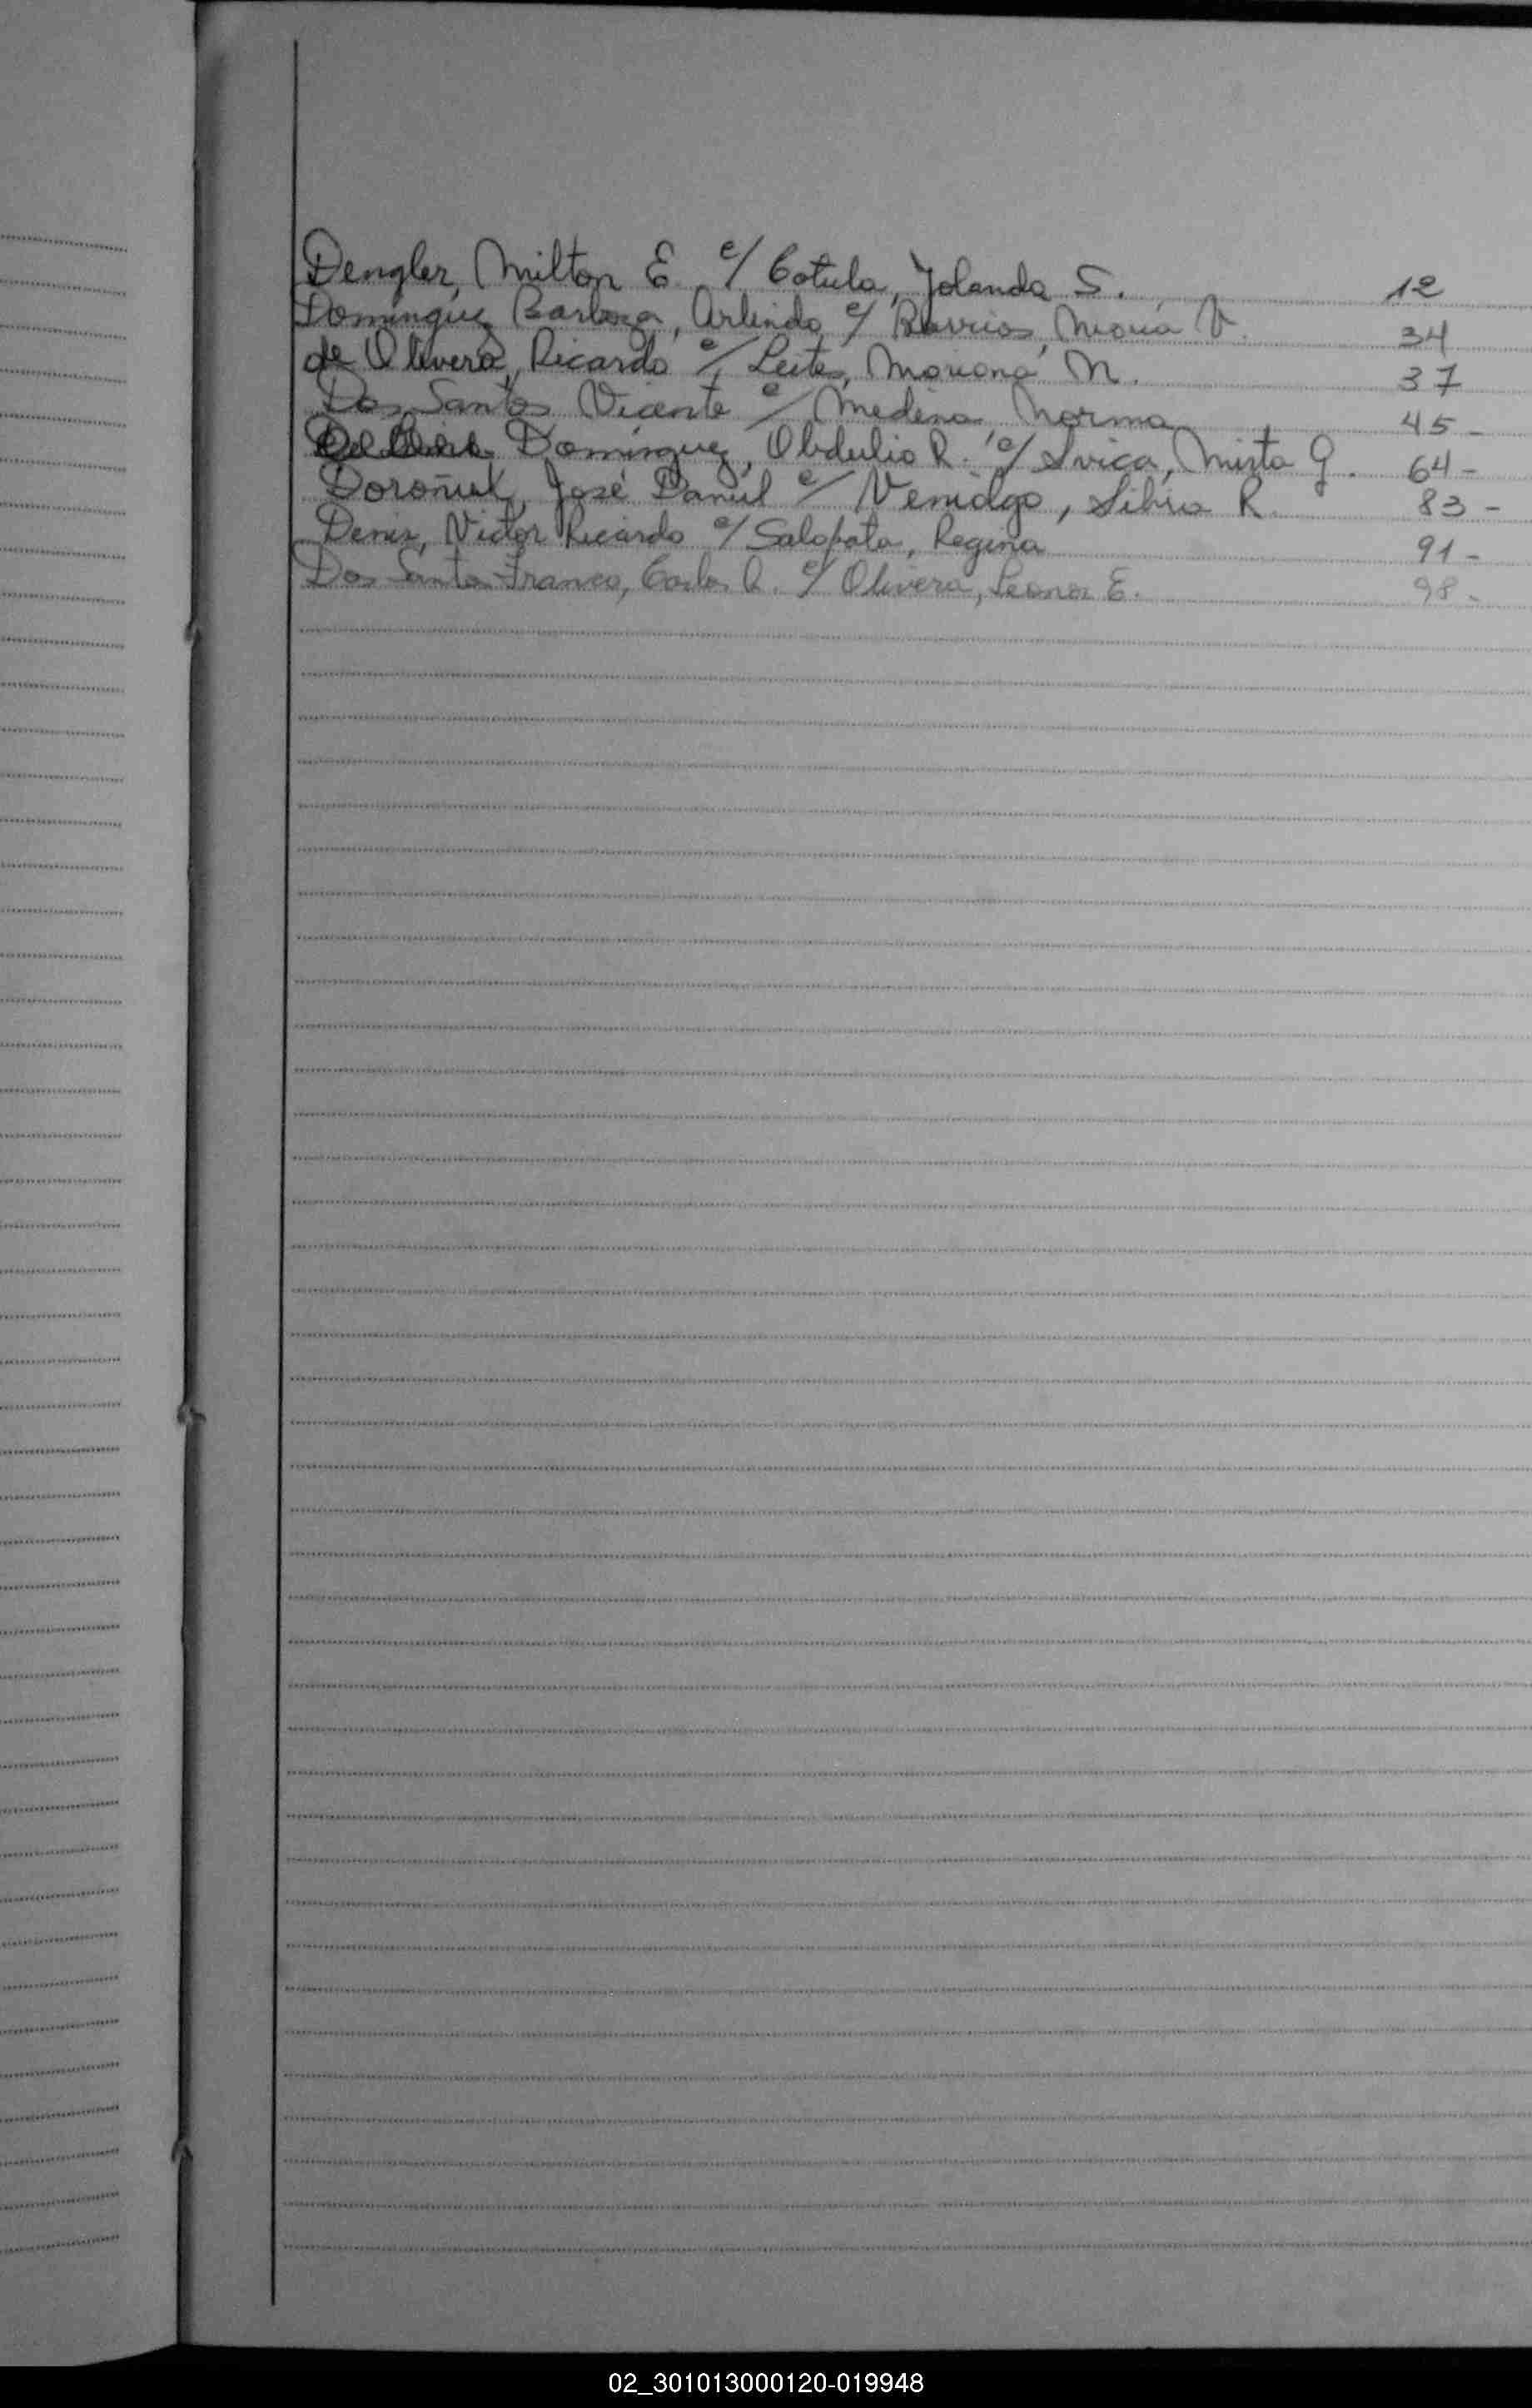 Dengler, Milton E. c/ Cotula, Yolanda S. 12
Domínguez Barboza, Arlindo c/ Barrios, María V. 34
de Olivera, Ricardo c/ Leites, Mariana M. 37
Dos Santos Vicente c/ Medina, Norma 45-
Domínguez, Obdulio R. c/ Mirta G. 64-
José Daniel c/ Libia R. 83-
Deniz, Victor Ricardo c/ Regina 91-
Dos Santos Franco, Carlos c/ Olivera, Leonor E. 98-
02_301013000120-019948